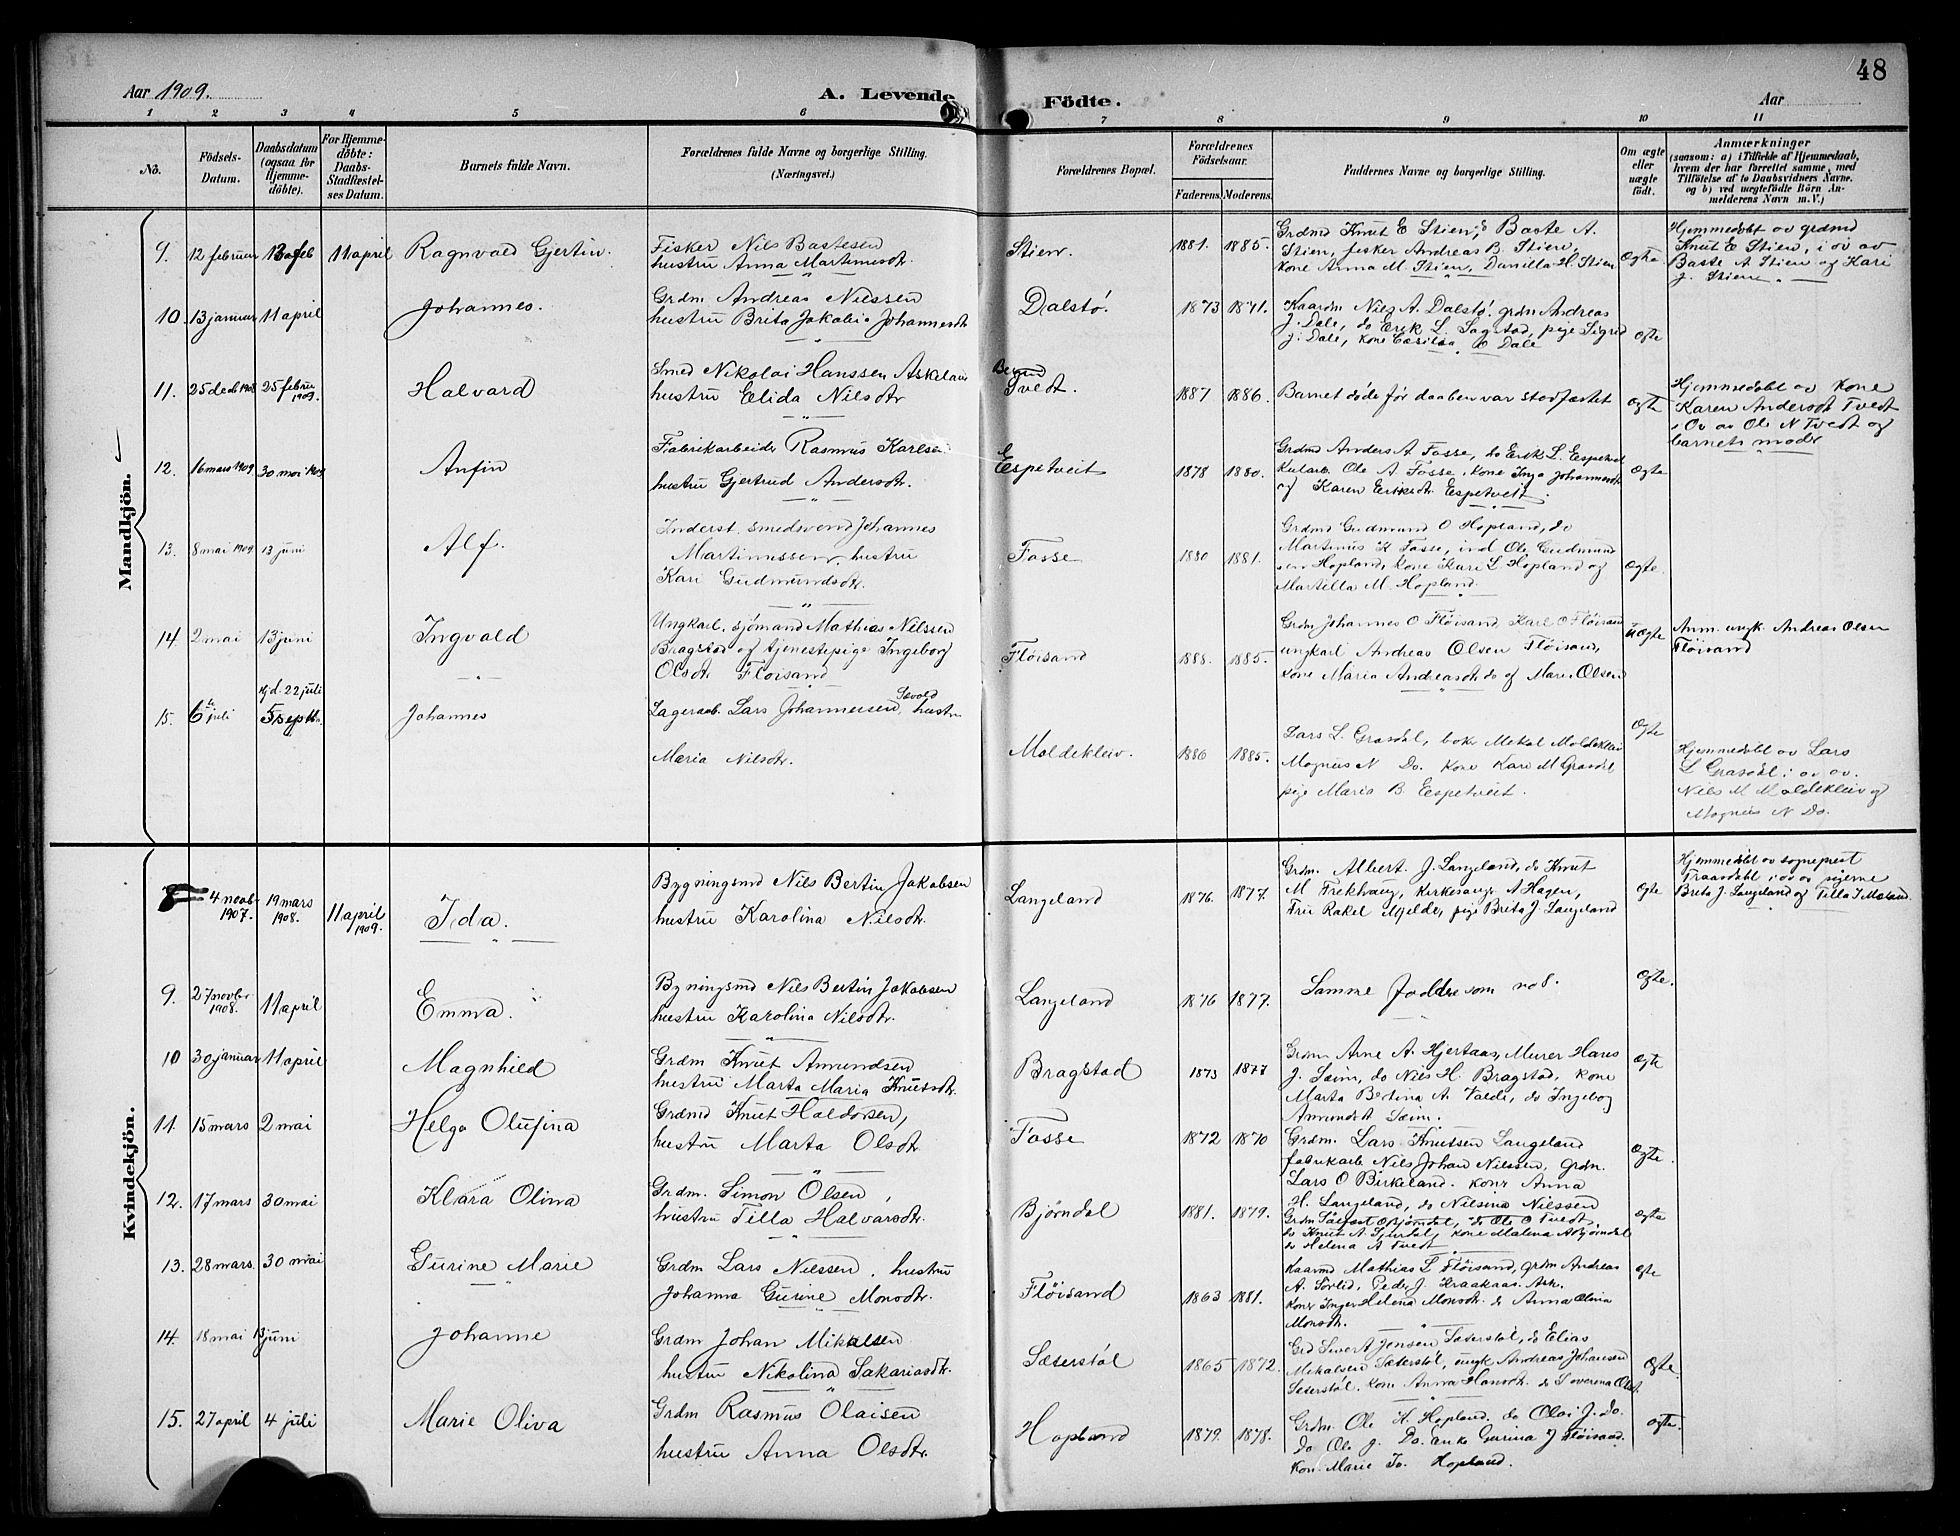 48
Aar 1909.
A. Levende Födte.
Aar
1 2 3 4 5 6 7 8 9 10 11
No.
Födsels-
Datum.
Daabsdatum
(ogsaa for
Hjemme-
döbte).
For Hjemme-
döbte:
Daabs-
Stadfæstel-
ses Datum.
Barnets fulde Navn.
Forældrenes fulde Navne og borgerlige Stilling.
(Næringsvei.)
Forældrenes Bopæl.
Forældrenes
Födselsaar.
Faderens.
Moderens.
Faddernes Navne og borgerlige Stilling.
Om ægte
eller
uægte
födt.
Anmærkninger
(saasom: a) i Tilfælde af Hjemmedaab,
hvem der har forrettet samme, med
Tilföielse af to Daabsvidners Navne.
og b) ved uægtefödte Börn An-
melderens Navn m.V.)
Mandkjön.
9. 12 februar 13 feb 11 april Ragnvald Gjertin.
Fisker Nils Bastesen
hustru Anna Martinusdtr.
Stien.
1881. 1885.
Grdmd Knut E Stien, Baste A.
Stien, fisker Andreas B. Stien,
kone Anna M. Stien, Danilla H. Stien
Ægte.
Hjemmedøbt av grdmd
Knut E Stien, i ov av
Baste A Stien og Kari
J. Stien
10. 13 januar 11 april Johannes.
Grdm Andreas Nilssen
hustru Brita Jakobia Johannesdtr
Dalstø.
1873 1871.
Kaardm Nils A. Dalstø. grdm Andreas
J. Dale, do Erik L. Sagstad, pige Sigrid
J. Dale, kone Cecilia O Dale
Ægte
11. 25 decb 1908 25 februar 1909 Halvard
Smed Nikolai Hanssen Askeland
hustru Elida Nilsdtr
Tvedt.
1887 1886.
Barnet døde før daaben var stadfæstet
Ægte
Hjemmedøbt av kone
Karen Andersdt Tvedt
i Ov av Ole N Tvedt og
barnets moder
12. 16 mars 1909 30 mai 1909 Anfin
Fabrikarbeider Rasmus Karlsen
hustru Gjertrud Andersdtr.
Espetveit
1878 1880.
Grdmd Anders A Fosse, do Erik L. Espetveit
Ole A. Fosse, kone Inga Johannesdt
og Karen Eriksdtr. Espetveit.
Ægte
13. 8 mai 1909 13 juni Alf.
Inderst. smedsvend Johannes
Martinussen, hustru
Kari Gudmundsdtr.
Fosse
1880 1881.
Grdmd Gudmund O Hopland, do
Martinus K Fosse, ind Ole Gudmund
sen Hopland, kone Kari L Hopland og
Martilla M. Hopland.
Ægte.
14. 2 mai 13 juni Ingvald
Ungkarl. sjømand Mathias Nilssen
Bragstad og tjenestepige Ingeborg
Olsdtr Fløisand
Fløisand
1888. 1885.
Grdm Johannes O Fløisand, Karl O Fløisand
ungkarl Andreas Olsen Fløisand,
kone Maria Andreasdt do og Mari Olsen
uægte
Anm. ungk. Andreas Olsen
Fløisand
15. 6 juli hjd. 22 juli 5 septb. Johannes
Lagerarb. Lars Johannessen Sævold, hustru
Maria Nilsdtr.
Moldekleiv.
1886 1885.
Lars L. Grasdal, Mikal Moldekleiv
Magnus N Do. kone Kari M Grasdal
pige Maria B. Espetveit.
Ægte
Hjemmedøbt av Lars
L Grasdal i ov av.
Nils M Moldekleiv og
Magnus N Do.
Kvindekjön.
8 4 novb. 1907. 19 mars 1908. 11 april 1909. Ida.
Bygningsmd Nils Bertin Jakobsen
hustru Karolina Nilsdtr.
Langeland
1876. 1877.
Grdm. Albert J. Langeland, do Knut
M Trekhaug, kirkesanger A Hagen,
Fru Rakel Mjelde, pige Brita J. Langeland
Ægte
Hjemmedøbt av sogneprest
Traasdahl i ov av pigerne
Brita J. Langeland og Tilla J Mæland.
9. 27 novbr. 1908. 11 april Emma.
Bygningsmd Nils Bertin Jakobsen
hustru Karolina Nilsdtr.
Langeland
1876 1877.
Samme Faddere som no 8.
Ægte.
10 30 januar 11 april Magnhild
Grdm Knut Amundsen
hustru Marta Maria Knutsdtr.
Bragstad
1873 1877
Grdm Arne A. Hjertaas, Murer Hans
J. Seim, do Nils H. Bragstad, kone
Marta Bertina A. Valde, do Ingeborg
Amundsdt Seim.
Ægte
11. 15 mars 2 mai Helga Olufina
Grdmd Knut Haldorsen,
hustru Marta Olsdtr.
Fosse
1872 1870
Grdm. Lars Knutsen Langeland
fabrikarb Nils Johan Nilssen, grdm.
Lars O Birkeland. kone Anna
H. Langeland, do Nilsina Nilssen
Ægte.
12. 17 mars 30 mai Klara Olina
Grdm. Simon Olsen,
hustru Tilla Halvarsdtr.
Bjørndal
1881. 1879.
Grdm Sjefast O Bjørndal, do Ole O Tvedt,
do Knut A. Sjurdal, kone Malena A Bjørndal
do Helena A Tvedt
Ægte
13. 28 mars. 30 mai Gurine Marie
Grdm Lars Nilssen, hustru
Johanna Gurine Monsdtr.
Fløisand
1863 1881.
Kaarmd Mathias L Fløisand, grdm Andreas
A. Sørlid, Peder J. Kraakaas. Ask.
kone Inger Helena Monsdt. do Anna Olina
Monsdt.
Ægte
14. 18 mai 13 juni Johanne
Grdm Johan Mikalsen
hustru Nikolina Sakariasdtr.
Sæterstøl
1865 1872.
Grd Sivert Jonsen Sæterstøl, do Elias
Mikalsen Sæterstøl, ungk Andreas Johansen
Sæterstøl. kone Anna Hansdt. do Severena Olsdt.
Ægte.
15. 27 april 4 juli Marie Oliva
Grdm Rasmus Olaisen
hustru Anna Olsdtr.
Hopland
1879. 1878.
Grdm. Ole H. Hopland. do Olai J. Do.
Do Ole J. Do. Enke Gurina J Fløisand.
Kone Marie Jo. Hopland.
Ægte.